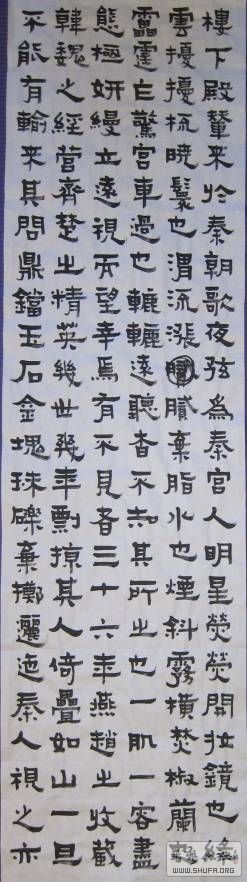 樓下殿輦來於秦朝歌夜弦為秦宮人明星熒熒開妝鏡也綠
雲擾擾梳曉鬟也渭流漲膩膩棄脂水也煙斜霧橫焚椒蘭
靁霆乍驚宮車過也轆轆遠聽杳不知其所之也一肌一容盡
態極妍縵立遠視而望幸焉有不見者三十六年燕趙之收藏
韓魏之經營齊楚之精英幾世幾年剽掠其人倚疊如山一旦
不能有輸來其間鼎鐺玉石金塊珠礫棄擲邐迤秦人視之亦
WWW.SHUFA.ORG